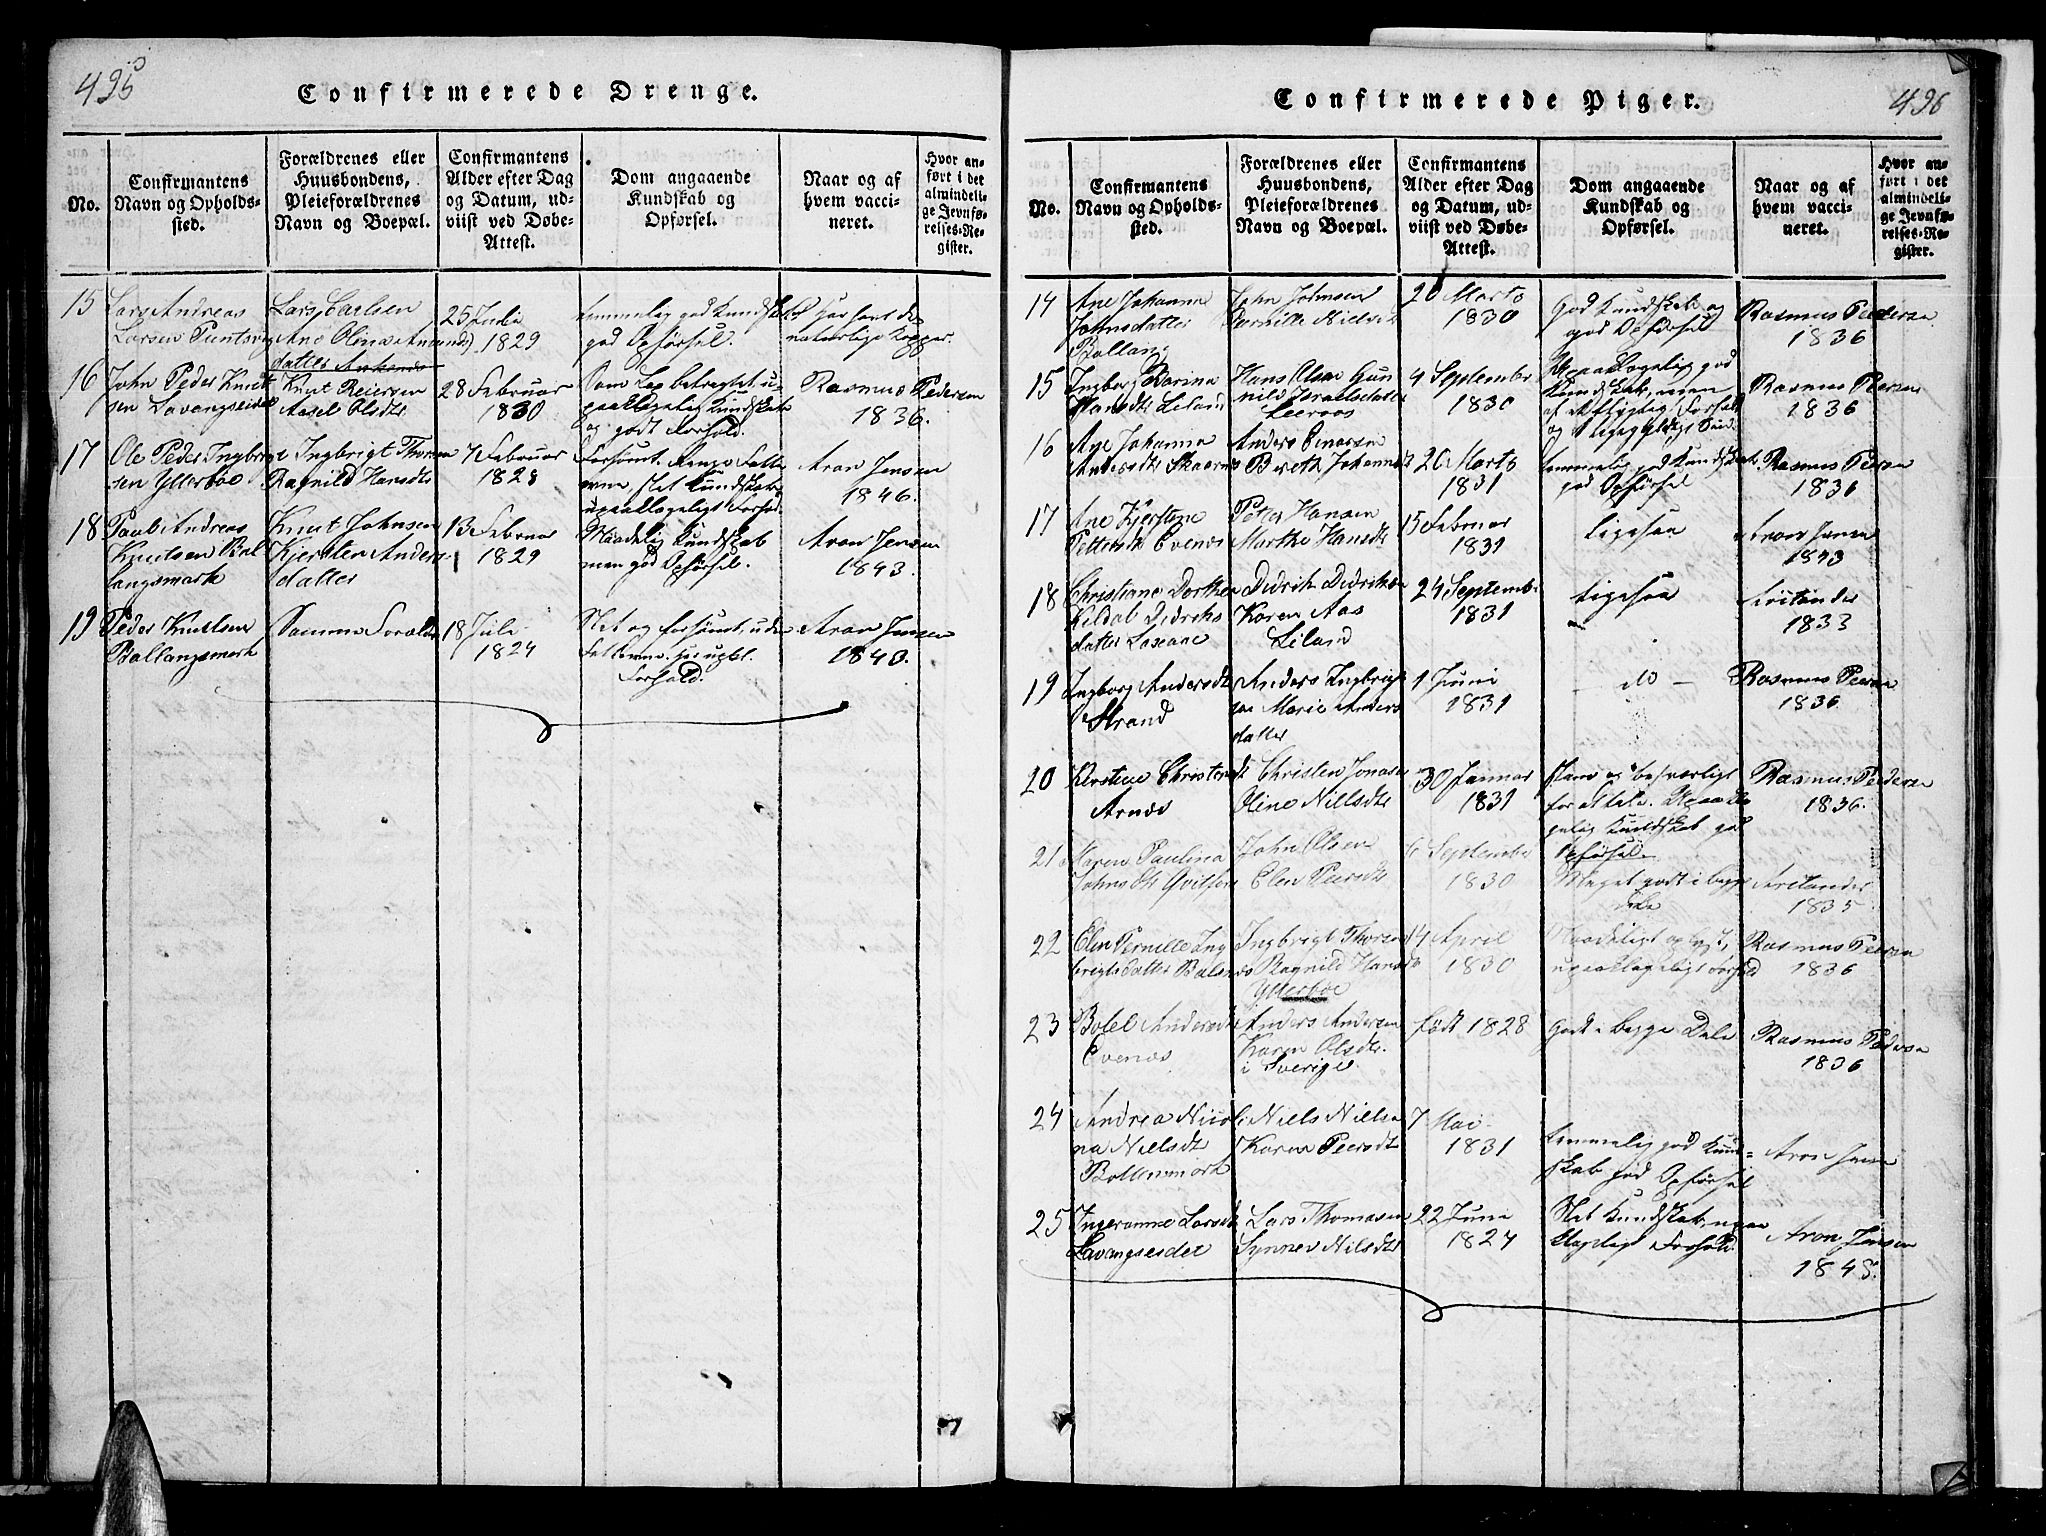 495
Confirmerede Drenge.
No.
Confirmantens
Navn og Opholds-
sted.
Forældrenes eller
Huusbondens,
Pleieforældrenes
Navn og Boepæl.
Confirmantens
Alder efter Dag
og Datum, ud-
viist ved Døbe-
Attest.
Dom angaaende
Kundskab og
Opførsel.
Naar og af
hvem vacci-
neret.
Hvor an-
ført i det
almindeli-
ge Jevnfø-
relses-Re-
gister.
15
Lars Andreas
Larsen
Lars Carlsen
Ane Olina Amund
datter
25 Juli
1829
temmelig god Kundskab
god Opførsel.
har havt de
naturlige Kopper.
16
John Peder Knut
sen Lavangseidet
Knut Reiersen
Aasel Olsdtr
28 Februar
1830
Som Lap betragtet u-
paaklagelig Kundskab
og godt Forhold.
Rasmus Pedersen
1836.
17
Ole Peder Ingbrigt
sen Ytterboe
Ingbrigt Thorsen
Ragnild Hansdtr
7 Februar
1828
Forsømt, ringe Fatte
evne, slet Kundskab,
upaaklageligt Forhold.
Aron Jensen
1846.
18
Paul Andreas
Knutsen Bal
langsmark
Knut Johnsen
Kjersten Anders
datter
13 Februar
1829
Maadelig Kundskab
men god Opførsel.
Aron Jensen
1843.
19
Peder Knutsen
Ballangsmark
Samme Foræld
18 Juli
1824
Slet og forsømt, uden
Fatteevne.
Forhold.
Aron Jensen
1843.
496
Confirmerede Piger.
No.
Confirmantens
Navn og Opholds-
sted.
Forældrenes eller
Huusbondens,
Pleieforældrenes
Navn og Boepæl.
Confirmantens
Alder efter Dag
og Datum, ud-
viist ved Døbe-
Attest.
Dom angaaende
Kundskab og
Opførsel.
Naar og af
hvem vacci-
neret.
Hvor an-
ført i det
almindeli-
ge Jevnfø-
relses-Re-
gister.
14
Ane Johanna
Johnsdatter
Ballang
John Johnsen
Pernille Nielsdt
20 Marts
1830
God Kundskab og
god Opførsel
Rasmus Pedersen
1836
15
Ingborg Karina
Hansdtr Leiland
Hans Olsen Gun
nild Israelsdatter
Leeraas
4 September
1830
Upaaklagelig god
Kundskab, men
Rasmus Peersen
1836
16
Ane Johanna
Andersdtr
Anders Einarsen
Bereth Johannesdtr
26 Marts
1831
temmelig god Kundskab
god Opførsel
Rasmus Peersen
1836
17
Ane Kjerstine
Pettersdtr Evenæs
Petter Hansen
Marthe Hansdtr
15 Februar
1831
ligesaa
Aron Jensen
1843
18
Christiane Dorthea
Kildal Didriks
datter
Didrik Didriksen
Karen Aas
Leiland
24 September
1831
ligesaa
1833
19
Ingborg Andersdtr
Strand
Anders Ingbrigt
sen Marie Anders
datter
1 Juni
1831
- do -
Rasmus Peersen
1836
20
Kerstine Christensdt
Arnæs
Christen Jonasen
Oline Nielsdtr
30 Januar
1831
og besværligt
for at tale. Upaakla
gelig Kundskab god
Opførsel.
Rasmus Pedersen
1836.
21
Maren Paulina
Johnsdtr
John Olsen
Elen Peersdtr
6 September
1830
Meget godt i begge
Dele
1835
22
Elen Pernille Ing
brigtsdatter Balsnæs
Ingbrigt Thorsen
Ragnild Hansdtr
Ytterboe
14 April
1830
Maadeligt oplyst,
upaaklageligt Forhold
Rasmus Peersen
1836
23
Bolel Andersdtr
Evenæs
Anders Andersen
Karen Olsdtr.
i Sverige
født 1828
Godt i begge Dele
Rasmus Pedersen
1836
24
Andrea Nicoli
na Nielsdtr
Niels Nielsen
Karen Peersdtr
7 Mai
1831
temmelig god Kund-
skab god Opførsel
Aron Jensen
25
Ingeranna Larsdtr
Lavangseidet
Lars Thomasen
Synnev Nilsdtr
22 Juni
1827
Slet Kundskab, upaa
klageligt Forhold.
Aron Jensen
1845.